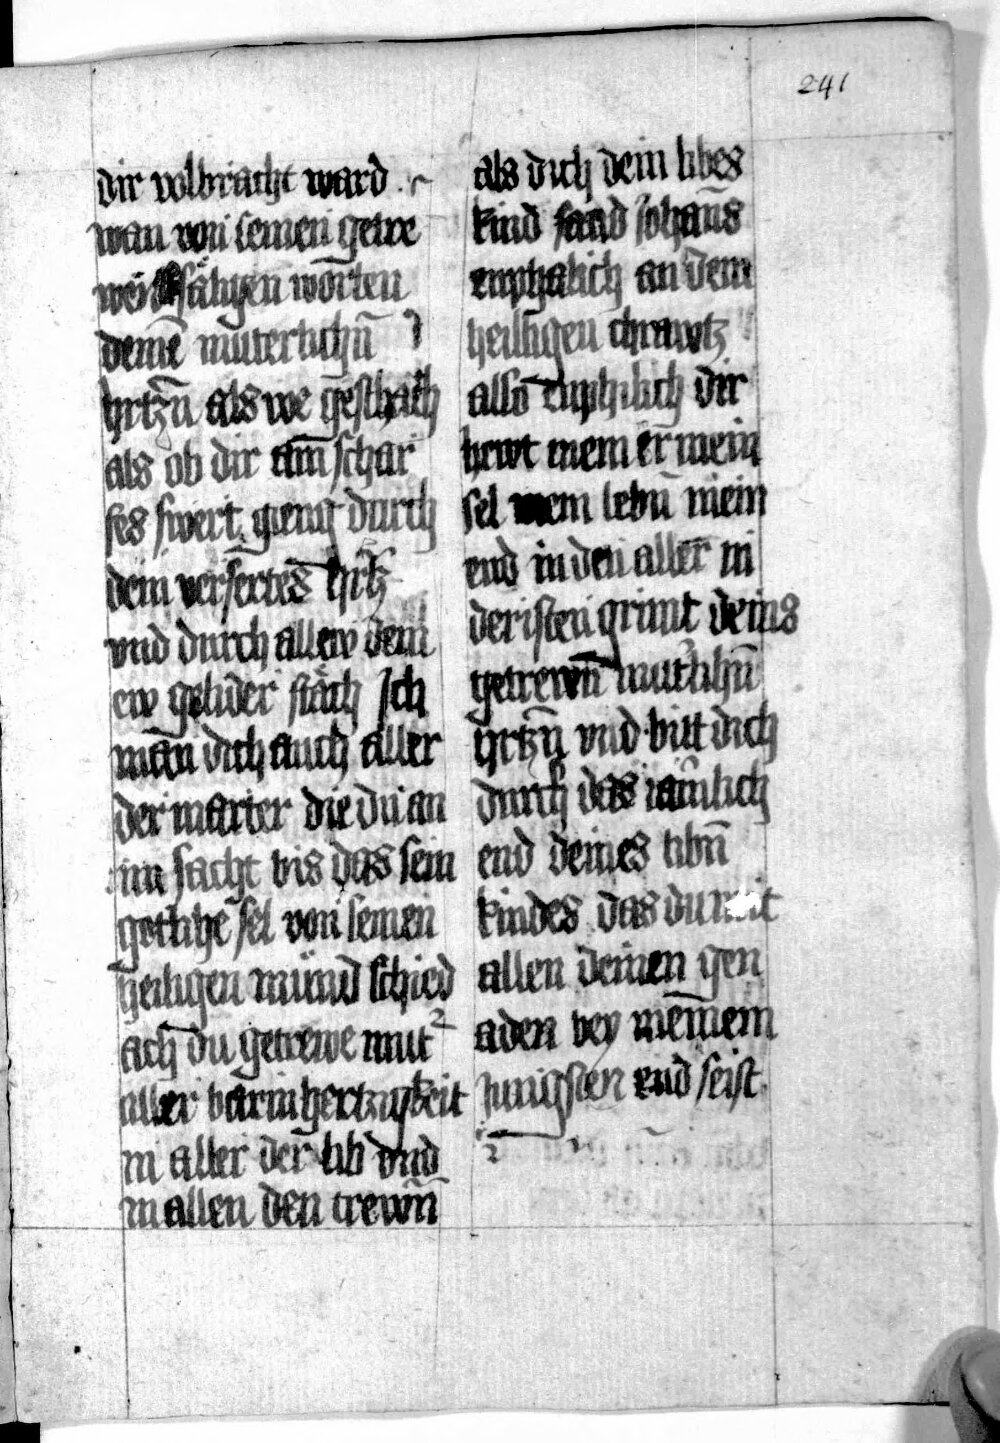 241
dir volbracht ward
wan von seinen getre
sätigen worten
deinē muterlichn̄
hrtzn̄ als we geschach
als ob dir ain schar
fes swert gieng durch
dein versertes hrtz
vnd durch allew dein
ew gelider stäch Ich
man dich auch aller
der marter die du an
im sacht bis das sein
gotliche sel von seinen
heiligen münd schied
ach du getrewe mut
aller barmhertzigkeit
in aller der lib vnd
in allen den trewn̄
als dich dein libes
kind sand Johan̄s
enphalich an dem
heilligen chrawtz
also enphilich dir
hewt mein er mein
sel mein lebn̄ mein
end in den aller in
deristen grunt deins
getrewn̄ mut̉lichn̄
hrtzn̄ vnd bitt dich
durch das iämlich
end deines libn̄
kindes das du mit
allen deinen gen
aden bey meinem
Jungsten end seist